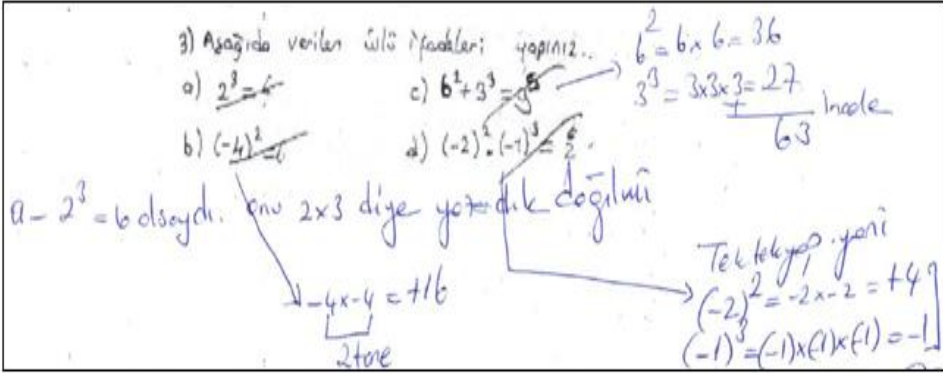 3) Aşağıda verilen üslü ifadeleri yapınız..
a) 2³ = 6
c) 6² + 3³ = 9⁵
b) (-4)²
d) (-2)² . (-1)³ =
6² = 6 x 6 = 36
3³ = 3x3x3 = 27
+
63
a - 2³ = 6 olsaydı. onu 2x3 diye yazardık değilmi
-4x-4 = +16
2 tane
Tek tek yap. yani
(-2)² = -2 x -2 = +4
(-1)³ = (-1)x(-1)x(-1) = -1